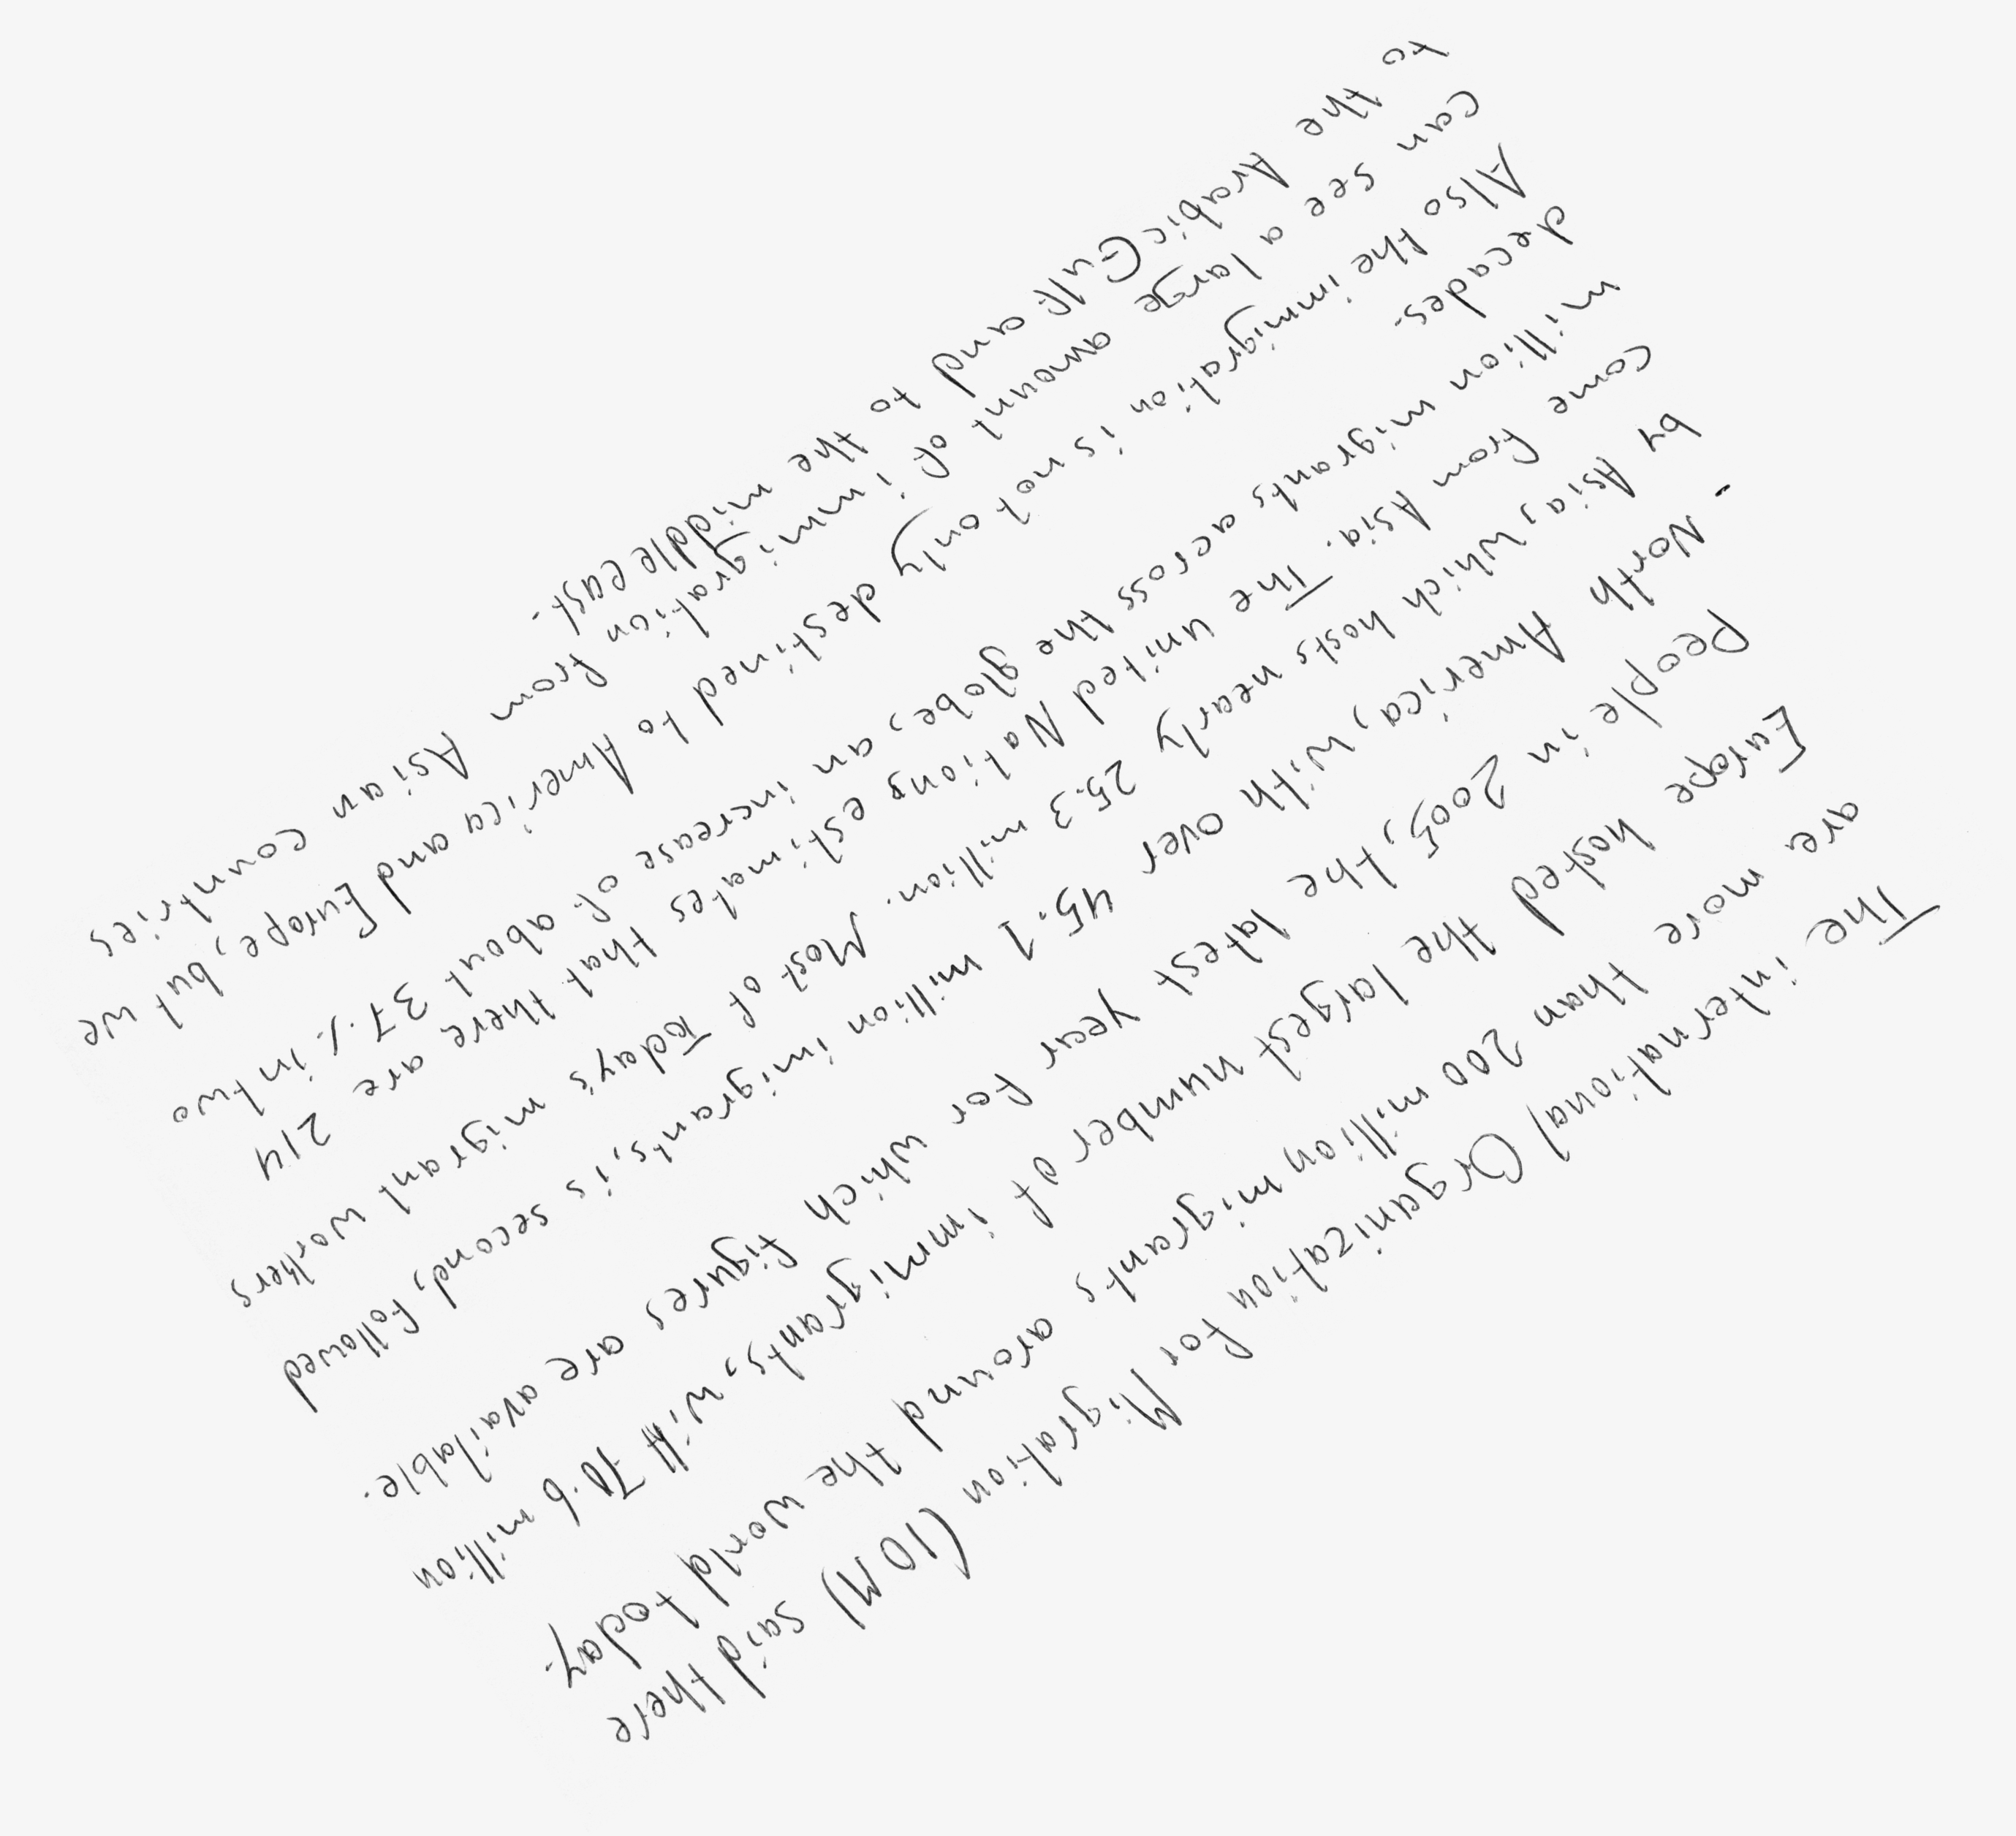 The international Organization for Migration (IOM) said there
are more than 200 million migrants around the world today.
Europe hosted the largest number of immigrants, with 70.6 million
People in 2005, the latest year for which figures are available.
- North America, with over 45.1 million immigrants, is second, followed
by Asia, which hosts nearly 25.3 million. Most of Todays migrant workers
come from Asia. The united Nations estimates that there are 214
million migrants across the globe, an increase of about 37% in two
decades.
Allso the immigration is not only destined to America and Europe, but we
can see a large amount of immigration from Asian countries
to the Arabic Gulf and to the middle east.